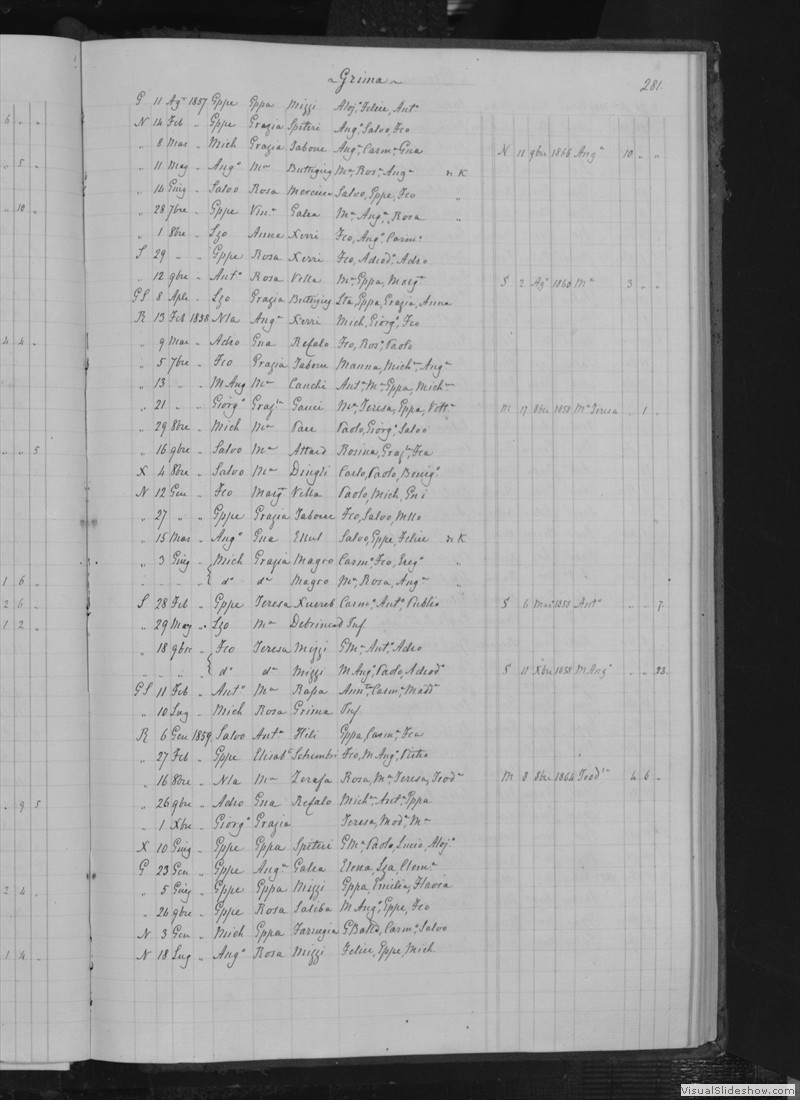 Grima
281.
G 11 Agto 1857 Gppe Gppa Mizzi Aloja, Felice, Anta
N 14 Feb " Gppe Grazia Spiteri Anga, Salvo, Fco
" 8 Mar " Mich Grazia Tabone Anga, Carma, Gna N 11 9bre 1866 Anga 10 " "
" 11 May " Ango Ma Buttigieg Ma, Rosa, Anga & K
" 14 Giug " Salvo Rosa Mercieca Salvo, Gppe, Fco "
" 28 7bre " Gppe Vina Galea Ma, Anga, Rosa "
" 1 8bre " Lzo Anna Xerri Fco, Ango, Carmo
S 29 " " Gppe Rosa Xerri Fco, Adeodo, Adeo
" 12 9bre " Anto Rosa Vella Ma, Gppa, Margta S 2 Ago 1860 Ma 3 " "
GS 8 Aple " Lzo Grazia Buttigieg Lza, Gppa, Grazia, Anna
R 13 Feb 1858 Nla Anga Xerri Mich, Giorgo, Fco
" 9 Mar " Adeo Gna Refalo Fco, Roso, Paolo
" 5 7bre " Fco Grazia Tabone Manna, Micha, Anga
" 13 " " M Ang Ma Cauchi Anta, Ma, Gppa, Micha
" 21 " " Giorgo Graza Gauci Ma, Teresa, Gppa, Vitta M 17 8bre 1858 Ma Teresa " 1 "
" 29 8bre " Mich Ma Pace Paolo, Giorgo, Salvo
" 16 9bre " Salvo Ma Attard Rosina, Graza, Fca
X 4 8bre " Salvo Ma Dingli Carlo, Paolo, Benigo
N 12 Gen " Fco Margta Vella Paolo, Mich, Gni
" 27 " " Gppe Grazia Tabone Fco, Salvo, Mtto
" 15 Mar " Ango Gna Ellul Salvo, Gppe, Felice & K
" 3 Giug " Mich Grazia Magro Carmo, Fco, Grego "
" " " do do Magro Ma, Rosa, Anga "
S 28 Feb " Gppe Teresa Xuereb Carmo, Anto, Publio S 6 Mar 1858 Anto " " 7
" 29 May " Lzo Ma Debrincat Inf
" 18 9bre " Fco Teresa Mizzi GMa, Anto, Adeo
" " " do do Mizzi M Anga, Paolo, Adeoda S 11 Xbre 1858 M Anga " " 23
GS 11 Feb " Anto Ma Rapa Annta, Carma, Madda
" 10 Lug " Mich Rosa Grima Inf
R 6 Gen 1859 Salvo Anta Hili Gppa, Carma, Fca
" 27 Feb " Gppe Elisabta Schembri Fco, M Ango, Pietro
" 16 8bre " Nla Ma Zerafa Rosa, Ma, Teresa, Teoda M 8 8bre 1864 Teoda 4 6 "
" 26 9bre " Adeo Gna Refalo Micha, Anta, Gppa
" 1 Xbre " Giorgo Grazia Teresa, Moda, Ma
X 10 Giug " Gppe Gppa Spiteri GMa, Paolo, Lucio, Alojo
G 23 Gen " Gppe Anga Galea Elena, Lza, Clema
" 5 Giug " Gppe Gppa Mizzi Gppa, Emilia, Flavia
" 24 9bre " Gppe Rosa Saliba M Ango, Gppe, Fco
N 3 Gen " Mich Gppa Farrugia GBatta, Carmo, Salvo
N 18 Lug " Ango Rosa Mizzi Felice, Gppe, Mich
VisualSlideshow.com